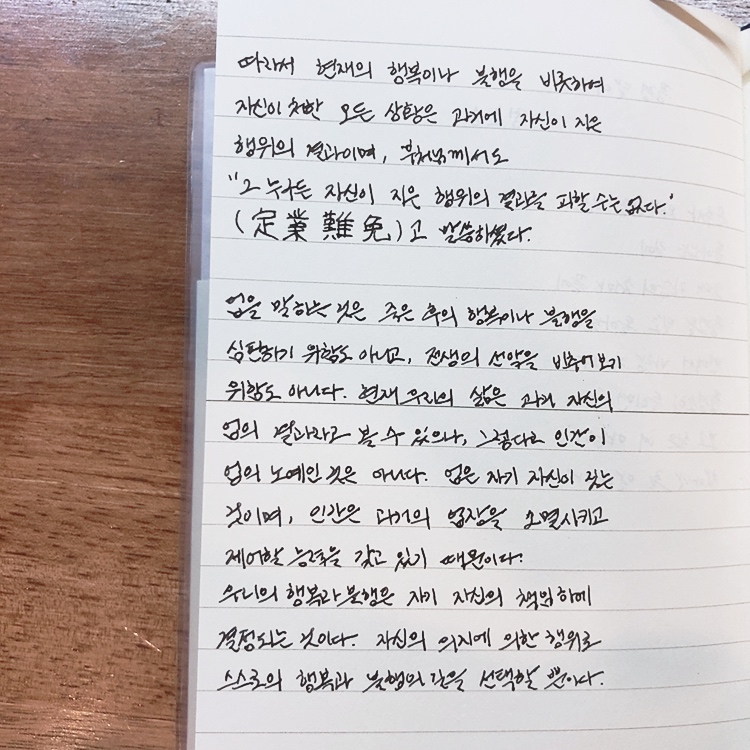 따라서 현재의 행복이나 불행을 비롯하여
자신이 처한 모든 상황은 과거에 자신이 지은
행위의 결과이며, 부처님께서도
"그 누구든 자신이 지은 행위의 결과를 피할 수는 없다."
(定業難免)고 말씀하셨다.
업을 말하는 것은 죽은 후의 행복이나 불행을
심판하기 위함도 아니고, 전생의 선악을 비추어보기
위함도 아니다. 현재 우리의 삶은 과거 자신의
업의 결과라고 볼 수 있으나, 그렇다고 인간이
업의 노예인 것은 아니다. 업은 자기 자신이 짓는
것이며, 인간은 과거의 업장을 소멸시키고
제어할 능력을 갖고 있기 때문이다.
우리의 행복과 불행은 자기 자신의 책임하에
결정되는 것이다. 자신의 의지에 의한 행위로
스스로의 행복과 불행의 길을 선택할 뿐이다.